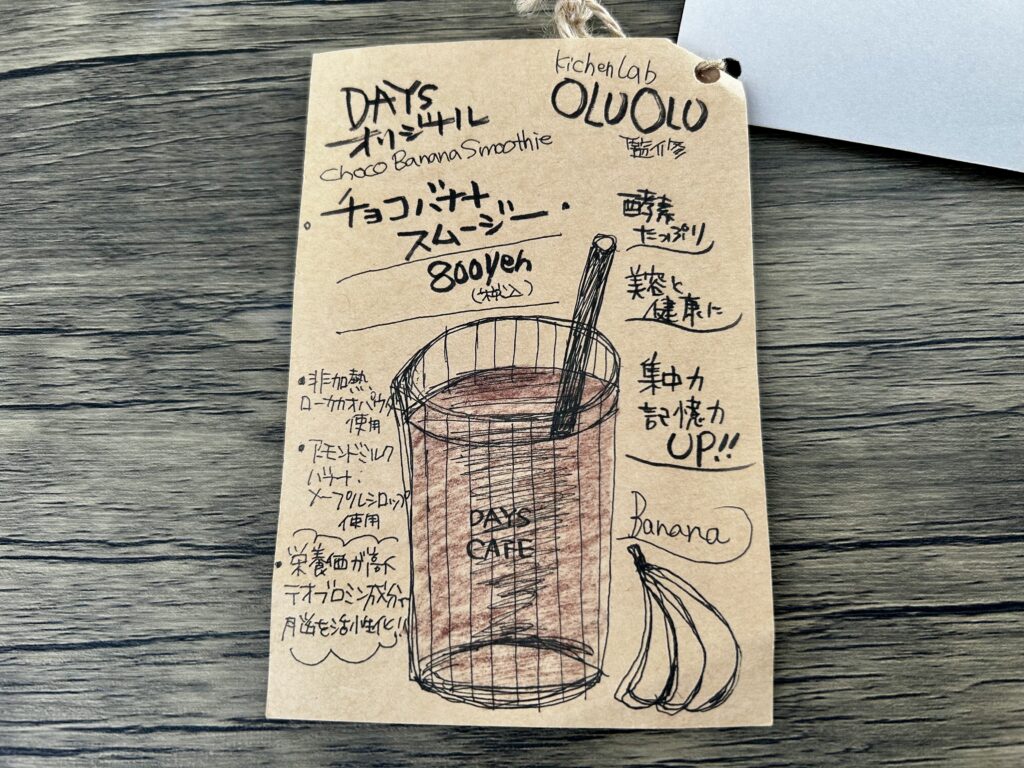 DAYS
オリジナル
Choco Banana Smoothie
チョコバナナ
スムージー
800yen
(税込)
KichenLab
OLUOLU
監修
酵素
たっぷり
美容と
健康に
集中力
記憶力
UP!!
・非加熱
ローカカオパウダ
使用
・アーモンドミルク
バナナ・
メープルシロップ
使用
・栄養価が高く
テオブロミン成分で
脳を活性化!!
DAYS
CAFE
Banana